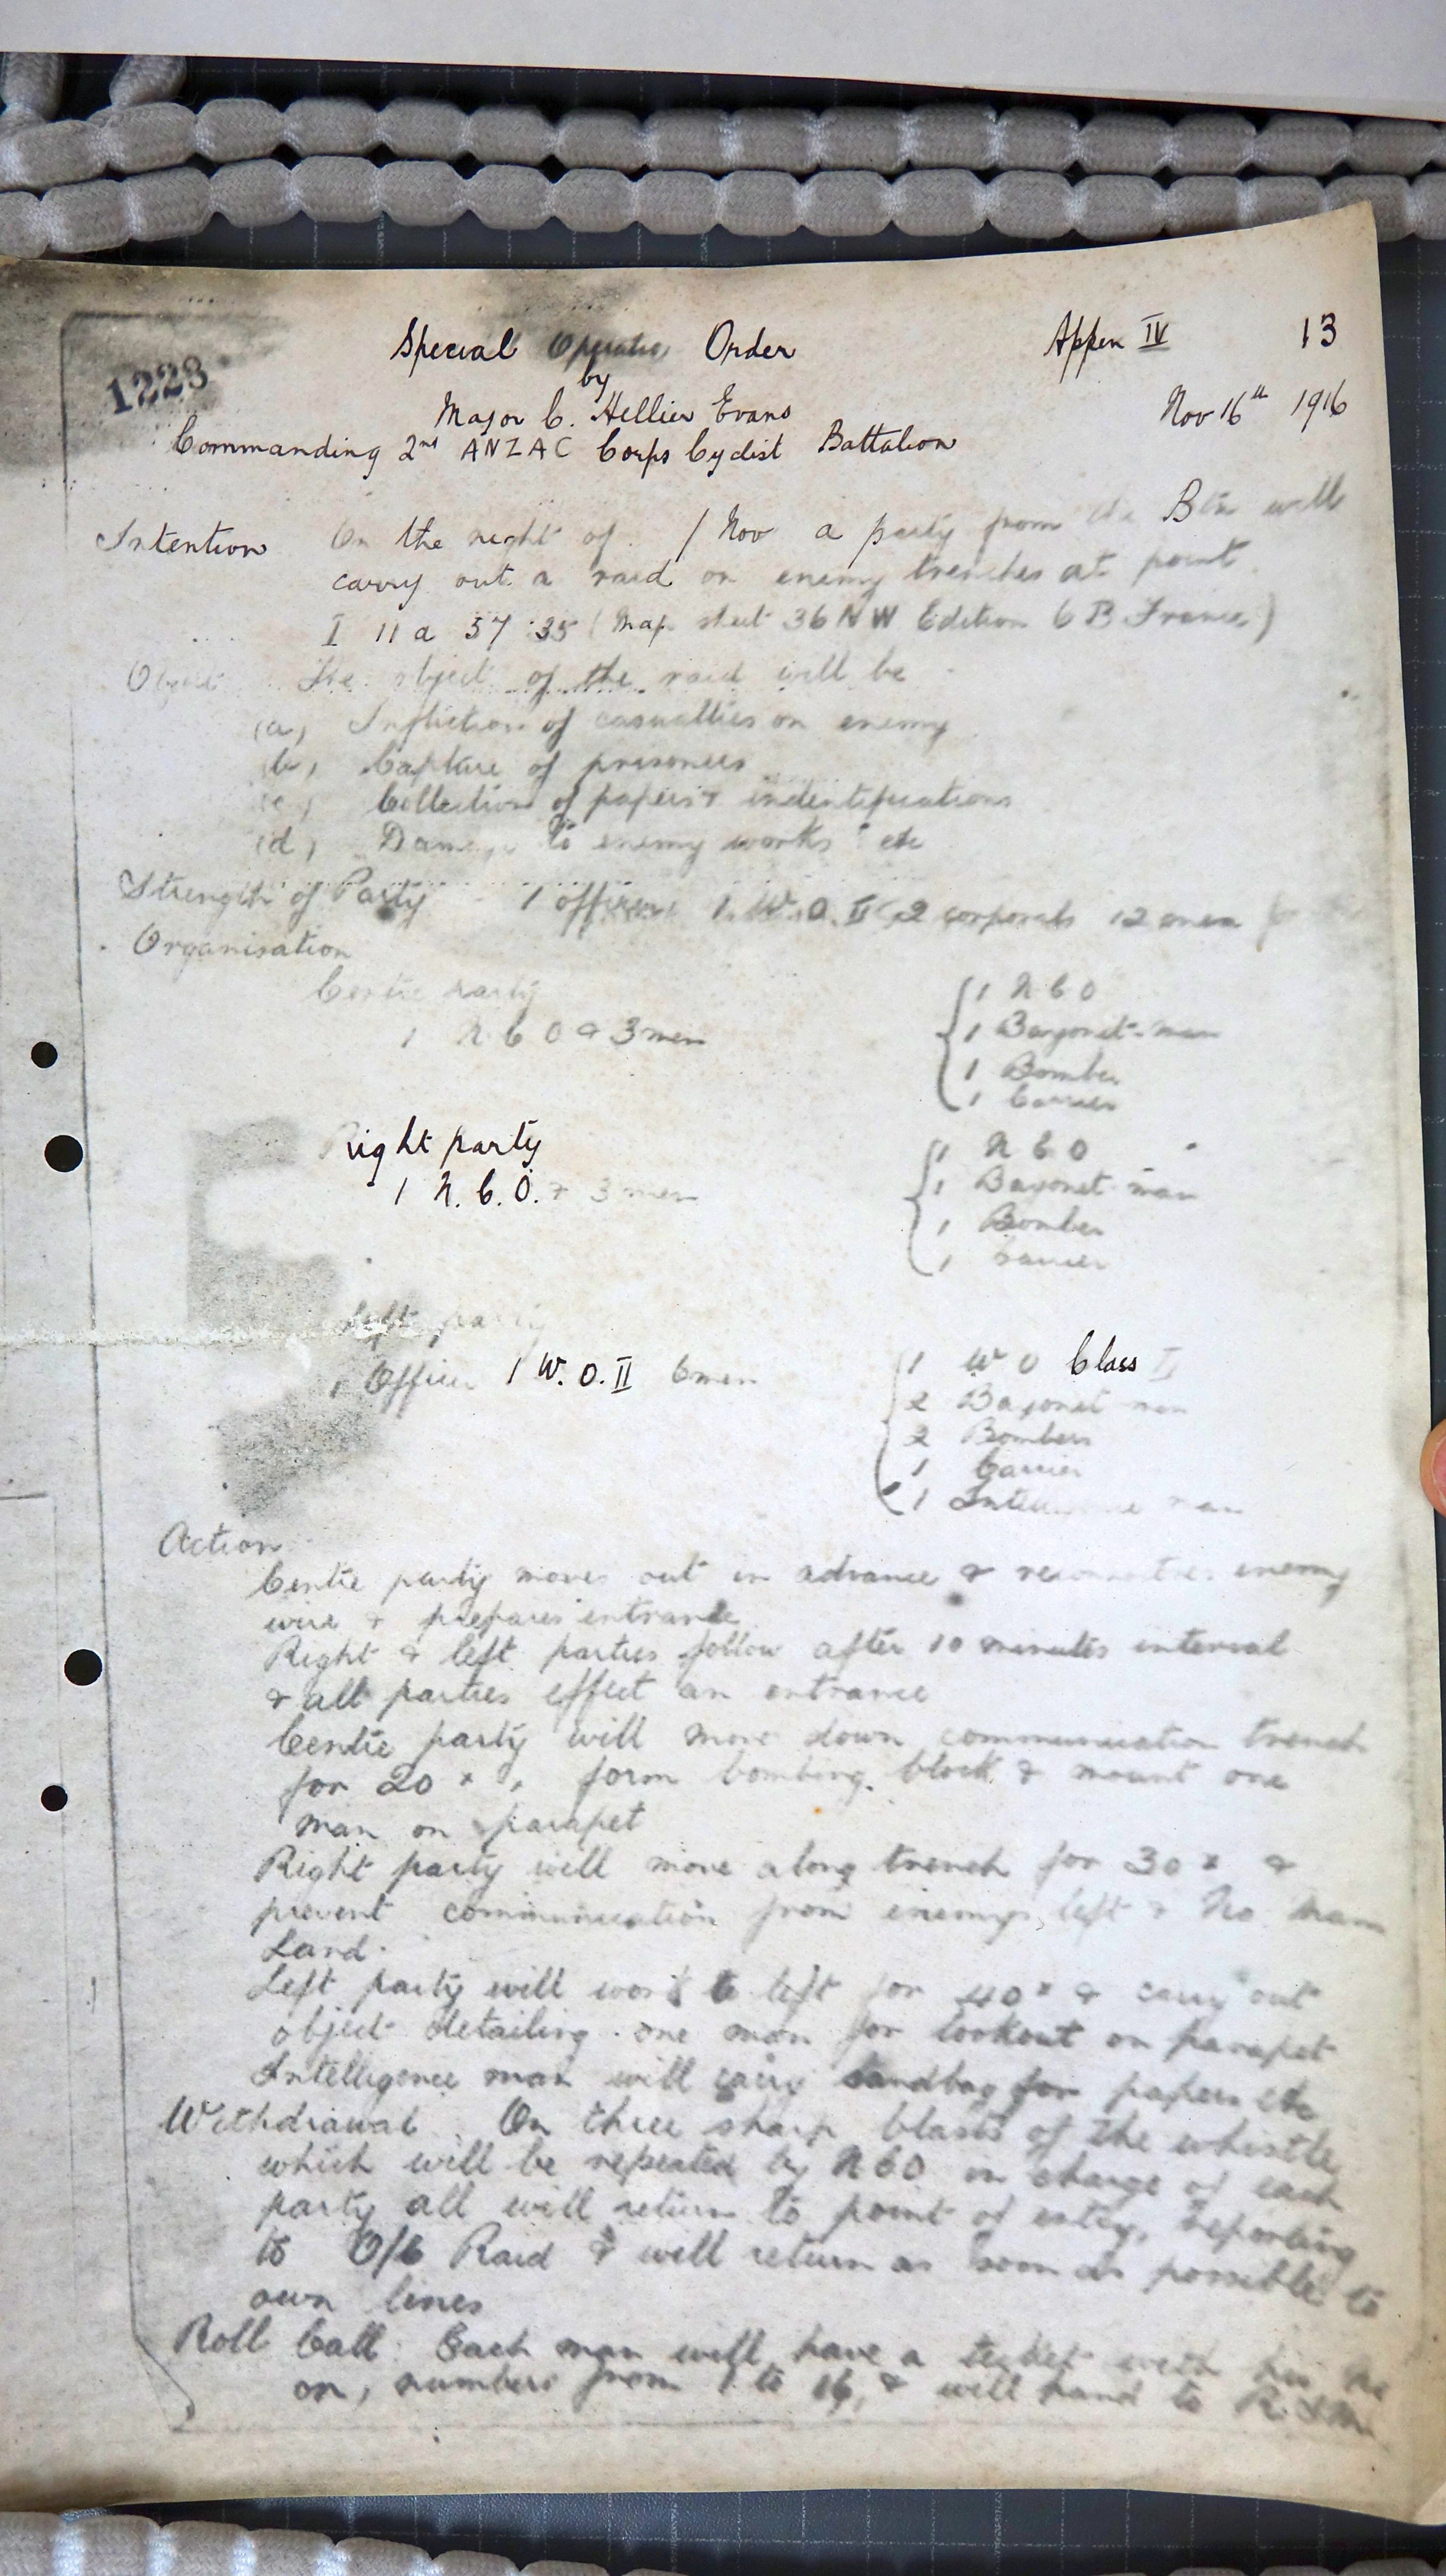 Special Operation Order
Appen IV
13
by
1223
Major C. Hellier Evans
Nov 16th 1916
Commanding 2nd ANZAC Corps Cyclist Battalion
Intention On the night of / Nov a party from the Btn will
carry out a raid on enemy trenches at point
I 11 a 57 35 (Map sheet 36 NW Edition 6 B France)
Object The object of the raid will be
(a) Infliction of casualties on enemy
(b) Capture of prisoners
(c) Collection of papers & indentifications
(d) Damage to enemy works etc
Strength of Party - 1 officer 1 W.O. II 2 corporals 12 men
Organisation
Centre party
1 N C O & 3 men
1 N C O
1 Bayonet-man
1 Bomber
1 Carrier
Right party
1 N.C.O. & 3 men
1 N C O
1 Bayonet man
1 Bomber
1 Carrier
Left party
1 Officer 1 W.O. II 6 men
1 W O Class II
2 Bayonet men
2 Bombers
1 Carrier
1 Intelligence man
Action
Centre party moves out in advance & reconnoitres enemy
wire & prepares entrance
Right & left parties follow after 10 minutes interval
& all parties effect an entrance
Centre party will move down communication trench
for 20 x, form bombing block & mount one
man on parapet
Right party will move along trench for 30 x &
prevent communication from enemys left & No Mans
Land.
Left party will work to left for 40 x & carry out
object detailing one man for lookout on parapet
Intelligence man will carry sandbag for papers etc
Withdrawal. On three sharp blasts of the whistle
which will be repeated by N C O in charge of each
party all will return to point of entry, reporting
to O/C Raid & will return as soon as possible to
own lines
Roll Call. Each man will have a ticket with his No
on, numbers from 1 to 16, & will hand to R.S.M.